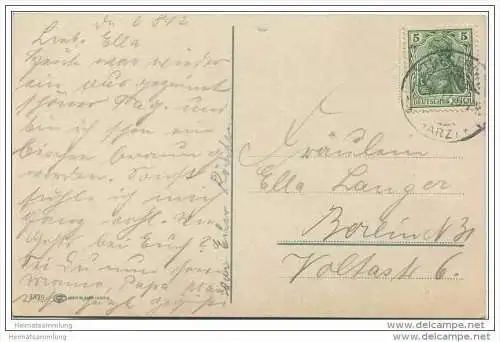 d. 6 8 12
Liebe Ella
Heute war wieder
ein aus gezeichnet
schöner Tag. Und
bin ich schon ein
bischen braun ge
worden. Sonst
fühle ich mich
ganz wohl. Wie
Gehts bei Euch?
Sei Du nun schön
Mama, Papa
5
5
DEUTSCHES REICH
(HARZ)
Fräulein
Ella Langer
Berlin N 31
Voltastr 6.
Heimatsammlung
Heimatsammlung
www.delcampe.net